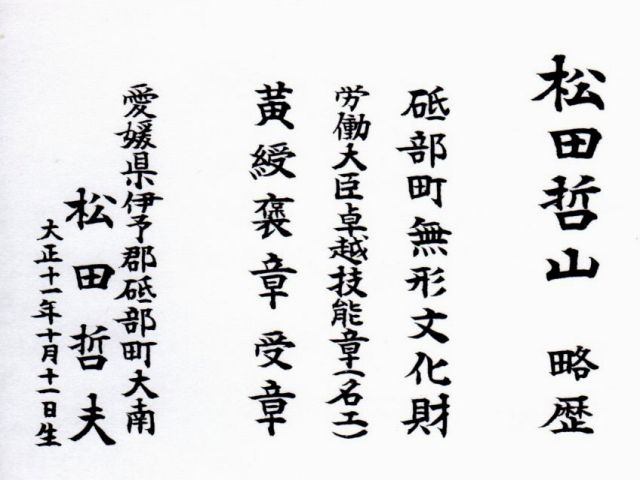 松田哲山 略歴
砥部町無形文化財
労働大臣卓越技能章(名工)
黄綬褒章受章
愛媛県伊予郡砥部町大南
松田哲夫
大正十一年十月十一日生